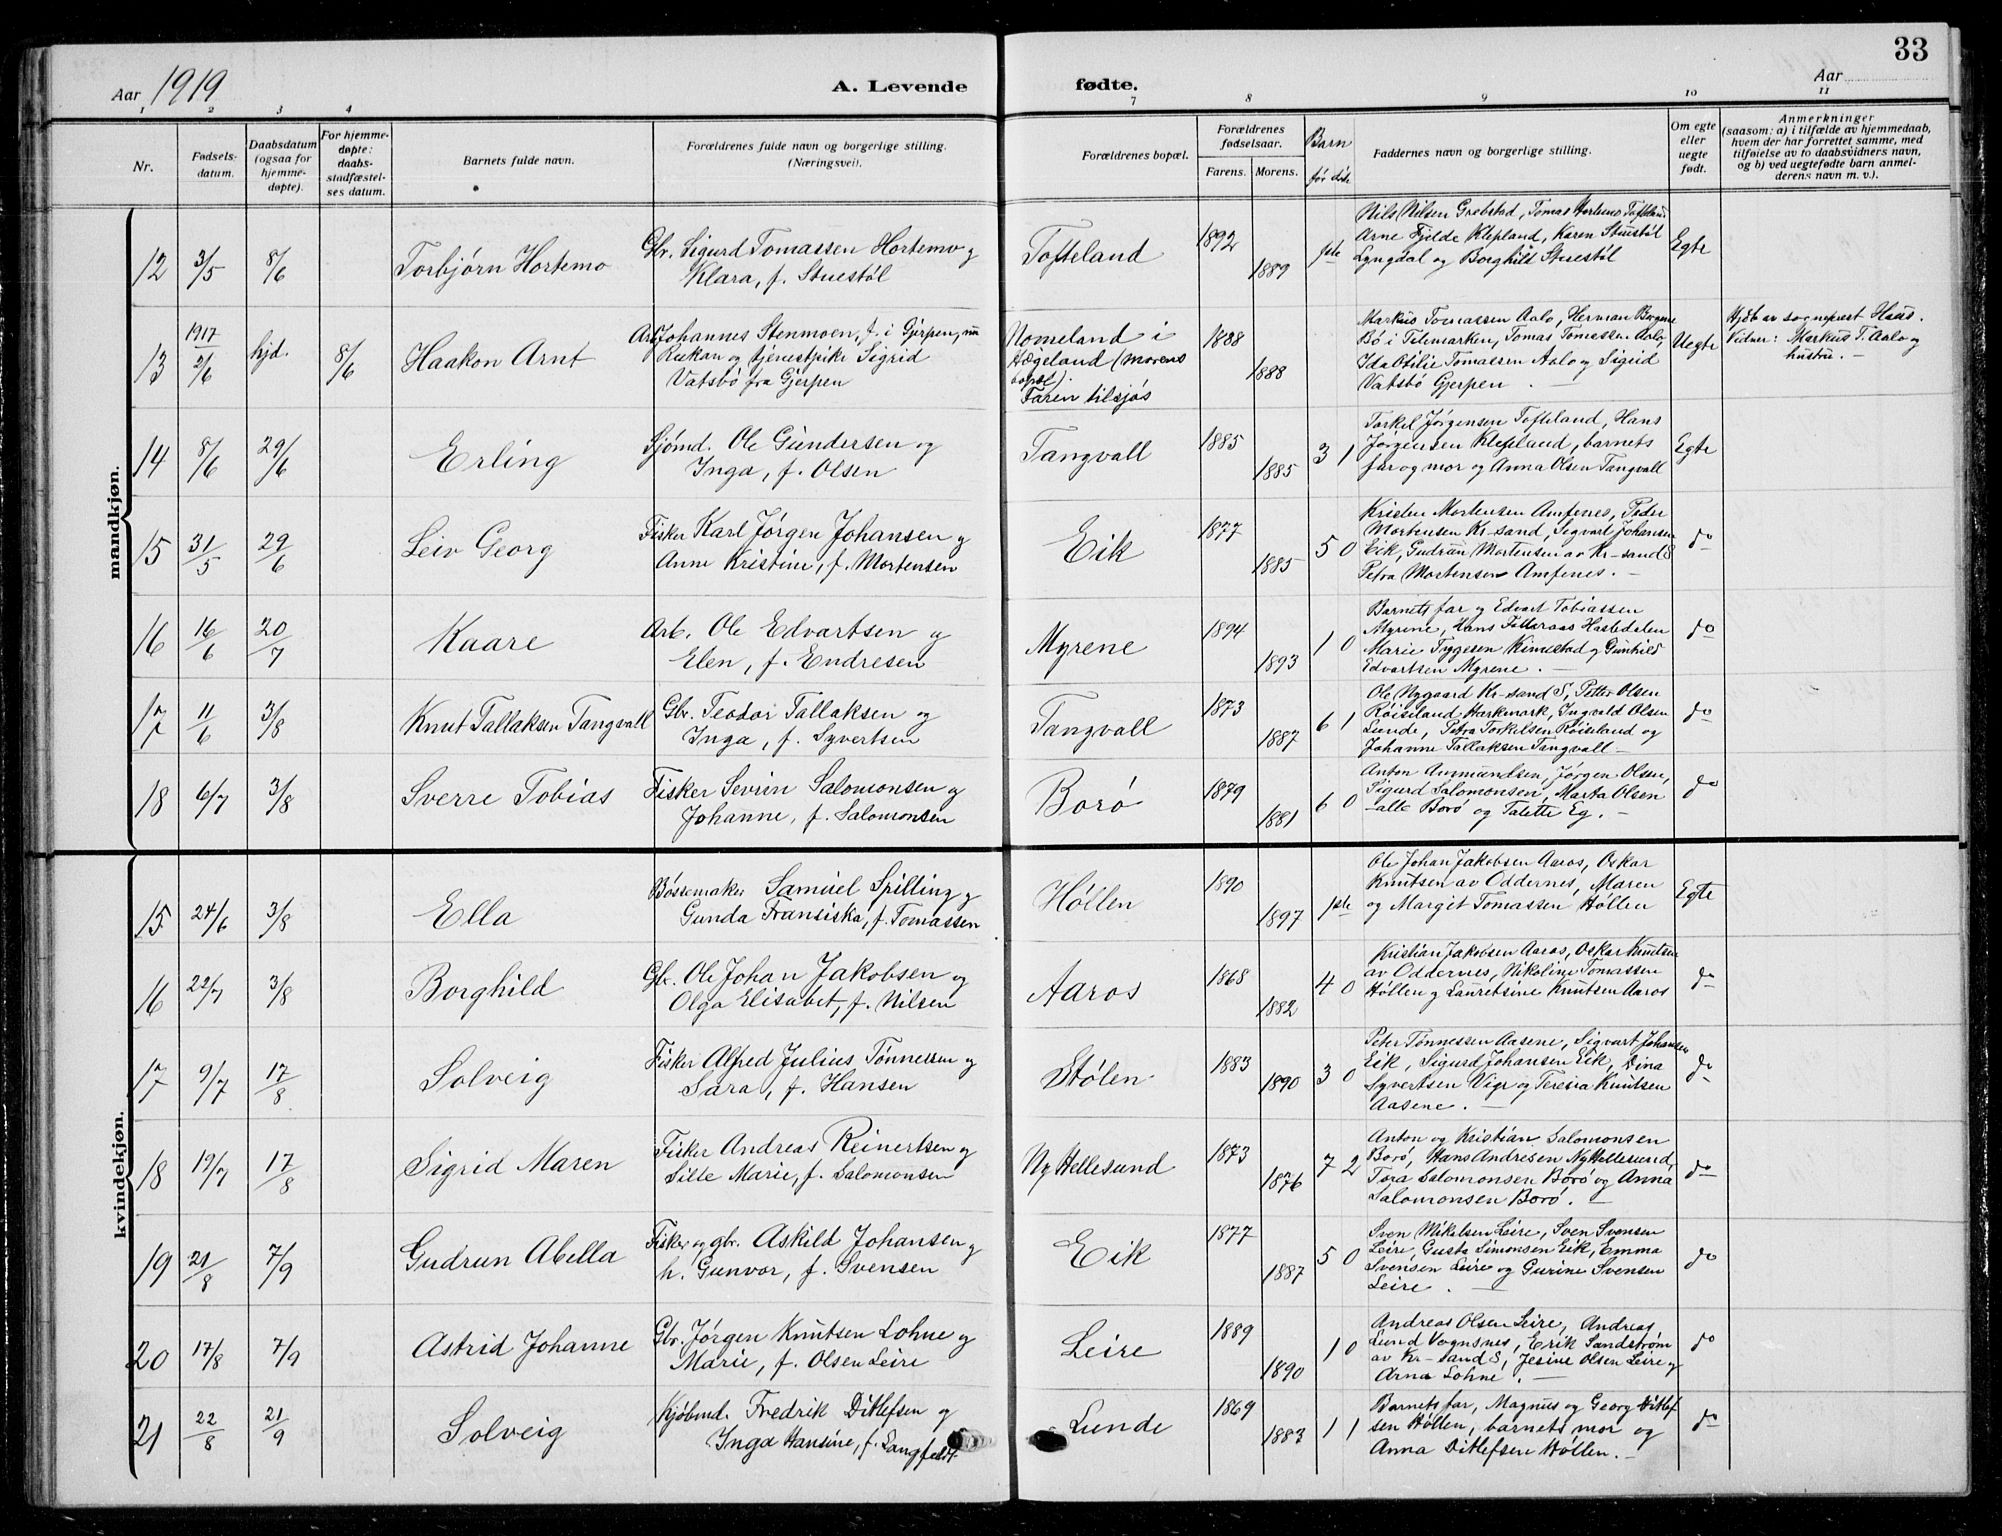 33
Aar 1919
A. Levende
fødte.
Aar
1 2 3 4 7 8 9 10 11
Nr.
Fødsels-
datum.
Daabsdatum
(ogsaa for
hjemme-
døpte).
For hjemme-
døpte:
daabs-
stadfæstel-
ses datum.
Barnets fulde navn.
Forældrenes fulde navn og borgerlige stilling.
(Næringsvei).
Forældrenes bopæl.
Forældrenes
fødselsaar.
Farens. Morens.
Barn
før
Faddernes navn og borgerlige stilling.
Om egte
eller
uegte
født.
Anmerkninger
(saasom: a) i tilfælde av hjemmedaab,
hvem der har forrettet samme, med
tilføielse av to daabsvidners navn,
og b) ved uegtefødte barn anmel-
derens navn m. v.).
mandkjøn.
12 3/5 8/6 Torbjørn Hortemo
Gbr. Sigurd Tomassen Hortemo og
Klara, f. Stuestøl
Tofteland 1892 1889 1ste
Nils Nilsen Grebstad, Tomas Hortemo Tofteland
Arne Fjelde Klepland, Karen Stuestøl
Lyngdal og Borghild Stuestøl
Egte
13 1917 2/6 hjd. 8/6 Haakon Arnt
Arb. Johannes Stenmoen, f. i Gjerpen, nu
Rukan og tjenestpike Sigrid
Vatsbø fra Gjerpen
Nomeland i
Hægeland (morens
bopæl).
Faren tilsjøs
1888 1888
Markus Tomassen Aalo, Herman
Bø i Telemarken, Tomas Tomassen Aalo,
Ida Otilie Tomassen Aalo og Sigrid
Vatsbø Gjerpen. —
Uegte
Hjdb av sognepræst Haus.
Vidner: Markus T. Aalo og
hustru. —
14 8/6 29/6 Erling
Sjømd. Ole Gundersen og
Inga, f. Olsen
Tangvall 1885 1885 3 1
Torkel Jørgensen Tofteland, Hans
Jørgensen Klepland, barnets
far og mor og Anna Olsen Tangvall
Egte
15 31/5 29/6 Leiv Georg
Fisker Karl Jørgen Johansen og
Anne Kristine, f. Mortensen
Eik 1877 1885 5 0
Kristen Mortensen Amfenes, Peder
Mortensen Kr-sand, Segvart Johansen
Eik, Gudrun Mortensen av Kr-sand S
Petra Mortensen Amfenes. —
do
16 16/6 20/7 Kaare
Arb. Ole Edvartsen og
Elen, f. Endresen
Myrene 1894 1893 1 0
Barnets far og Edvart Tobiassen
Myrene, Hans Hastedalen
Marie Tyggesen Kimestad og Gunhild
Edvartsen Myrene. —
do
17 11/6 3/8 Knut Tallaksen Tangvall
Gbr. Teodor Tallaksen og
Inga, f. Syvertsen
Tangvall 1873 1887 6 1
Ole Nygaard Kr-sand S, Petter Olsen
Røiseland Harkmark, Ingvald Olsen
Lunde, Petra Torkelsen Røiseland og
Johanne Tallaksen Tangvall —
do
18 6/7 3/8 Sverre Tobias
Fisker Sevrin Salomonsen og
Johanne, f. Salomonsen
Borø 1879 1881 6 0
Anton Aanmundsen, Jørgen Olsen,
Sigurd Salomonsen, Marta Olsen
alle Borø og Talette Eg. —
do
kvindekjøn.
15 24/6 3/8 Ella
Bøssemaker Samuel Spilling og
Gunda Fransiska, f. Tomassen
Høllen 1890 1897 1ste
Ole Johan Jakobsen Aaros, Oskar
Knutsen av Oddernes, Maren
og Margit Tomassen Høllen
Egte
16 22/7 3/8 Borghild
Gbr. Ole Johan Jakobsen og
Olga Elisabet, f. Nilsen
Aaros 1868 1882 4 0
Kristian Jakobsen Aaros, Oskar Knutsen
av Oddernes, Nikoline Tomassen
Høllen og Lauretsine Knutsen Aaros
do
17 9/7 17/8 Solveig
Fisker Alfred Julius Tønnessen og
Sara, f. Hansen
Stølen 1883 1890 3 0
Peter Tønnessen Aasene, Sigvart Johansen
Eik, Sigurd Johansen Eik, Dina
Syvertsen Vige og Teresia Knutsen
Aasene. —
do
18 19/7 17/8 Sigrid Maren
Fisker Andreas Reinertsen og
Sille Marie, f. Salomonsen
Ny Hellesund 1873 1876 7 2
Anton og Kristian Salomonsen
Borø, Hans Andresen Ny Hellesund,
Tora Salomonsen Borø og Anna
Salomonsen Borø. —
do
19 21/8 7/9 Gudrun Abella
Fisker og gbr. Askild Johansen og
h. Gunvor, f. Svensen
Eik 1877 1887 5 0
Sven Mikelsen Leire, Sven Svensen
Leire, Gusta Simonsen Eik, Emma
Svensen Leire og Gurine Svensen
Leire. —
do
20 17/8 7/9 Astrid Johanne
Gbr. Jørgen Knutsen Lohne og
Marie, f. Olsen Leire
Leire 1889 1890 1 0
Andreas Olsen Leire, Andreas
Lund Vognsnes, Erik Sandstrøm
av Kr-sand S, Jesine Olsen Leire og
Arna Lohne. —
do
21 22/8 21/9 Solveig
Kjøbmd. Fredrik Ditlefsen og
Inga Hansine, f. Langfeldt
Lunde 1869 1883 1 1
Barnets far, Magnus og Georg Ditlef
sen Høllen, barnets mor og
Anna Ditlefsen Høllen. —
do